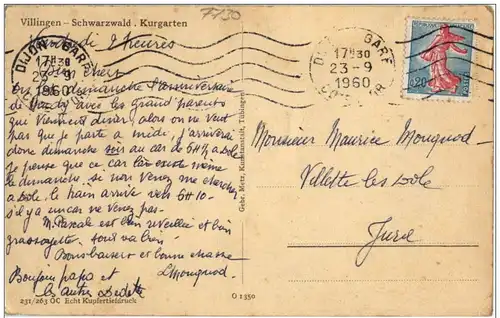 7/30
Villingen - Schwarzwald . Kurgarten
Vendredi 2 heures
DIJON GARE
17H30
22-9
1960
DIJON GARE
17H30
23-9
1960
COTE D'OR
0,20
dimanche l'anniversaire
avec les Grand parents
qui viennent diner, alors on ne veut
pas que je parte a midi, j'arriverai
donc dimanche soir au car de 6H½ a Dole
Je pense que ce car la existe même
le dimanche, si non venez me chercher
a Dole, le train arrive vers 6H10 -
s'il y a un car ne venez pas -
est bien reveillée et bien
grassouyette. tout va bien!
Bons baisers et bonne chasse
L Mougnod.
Bonjour papa et
les autres Dedette
Monsieur Maurice Mougnod -
Villette les Dole
Jura
Gebr. Metz, Kunstanstalt, Tübingen
231/263 OC Echt Kupfertiefdruck
O 1350